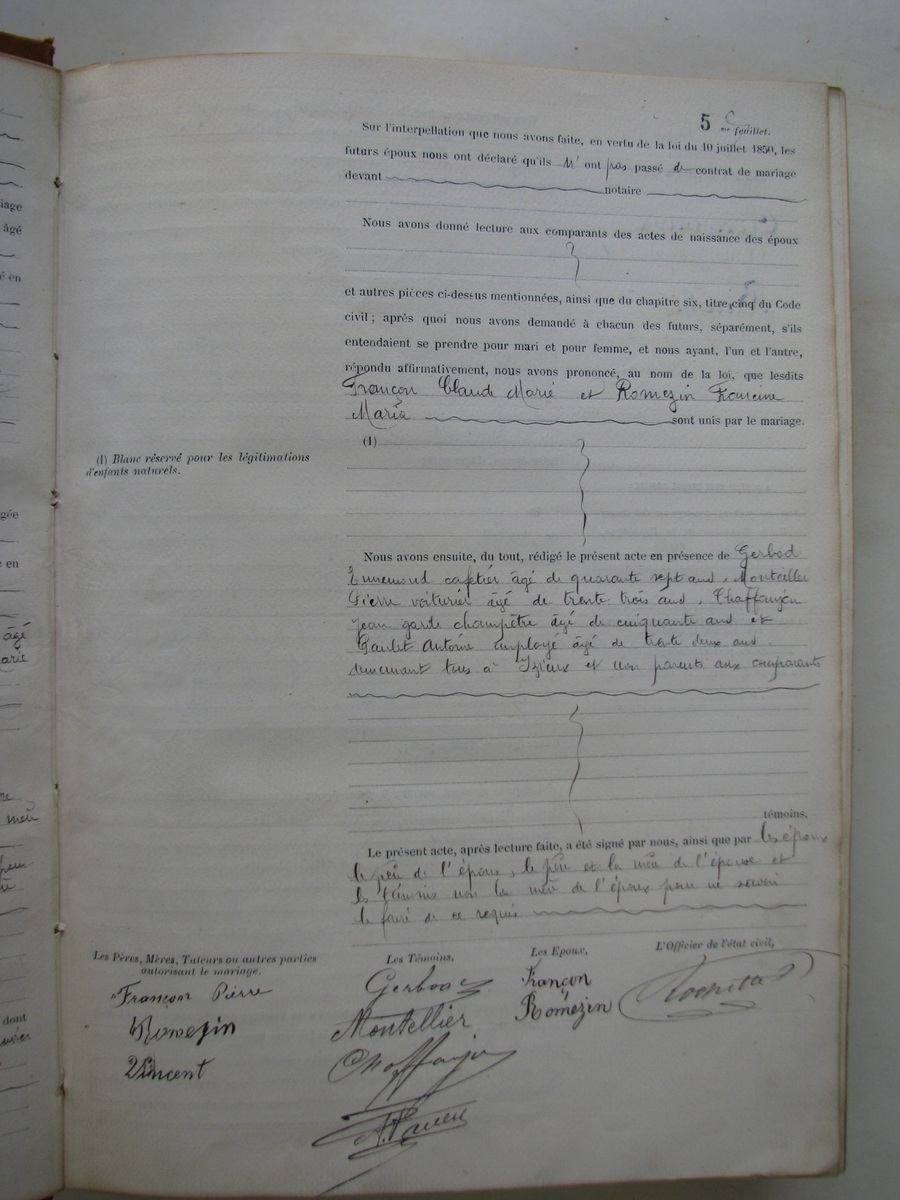 5 me feuillet.
Sur l'interpellation que nous avons faite, en vertu de la loi du 10 juillet 1850, les
futurs époux nous ont déclaré qu'ils n' ont pas passé de contrat de mariage
devant notaire
Nous avons donné lecture aux comparants des actes de naissance des époux
et autres pièces ci-dessus mentionnées, ainsi que du chapitre six, titre cinq du Code
civil ; après quoi nous avons demandé à chacun des futurs, séparément, s'ils
entendaient se prendre pour mari et pour femme, et nous ayant, l'un et l'autre,
répondu affirmativement, nous avons prononcé, au nom de la loi, que lesdits
Françon Claude Marie et Romezin Francine
Maria sont unis par le mariage.
(1)
(1) Blanc réservé pour les légitimations
d'enfants naturels.
Nous avons ensuite, du tout, rédigé le présent acte en présence de Gerbod
Ennemond cafetier âgé de quarante sept ans, Montellier
Pierre voiturier âgé de trente trois ans, Chaffanjon
Jean garde champêtre âgé de cinquante ans et
Antoine employé âgé de trente deux ans
demeurant tous à Izieux et non parents aux comparants
témoins.
Le présent acte, après lecture faite, a été signé par nous, ainsi que par les époux
le père de l'époux, le père et la mère de l'épouse et
les témoins non la mère de l'époux pour ne savoir
le faire de ce requis
Les Pères, Mères, Tuteurs ou autres parties
autorisant le mariage.
Les Témoins,
Les Epoux,
L'Officier de l'état civil,
Françon Pierre
Romezin
Vincent
Gerbod
Montellier
Chaffanjon
Françon
Romezin